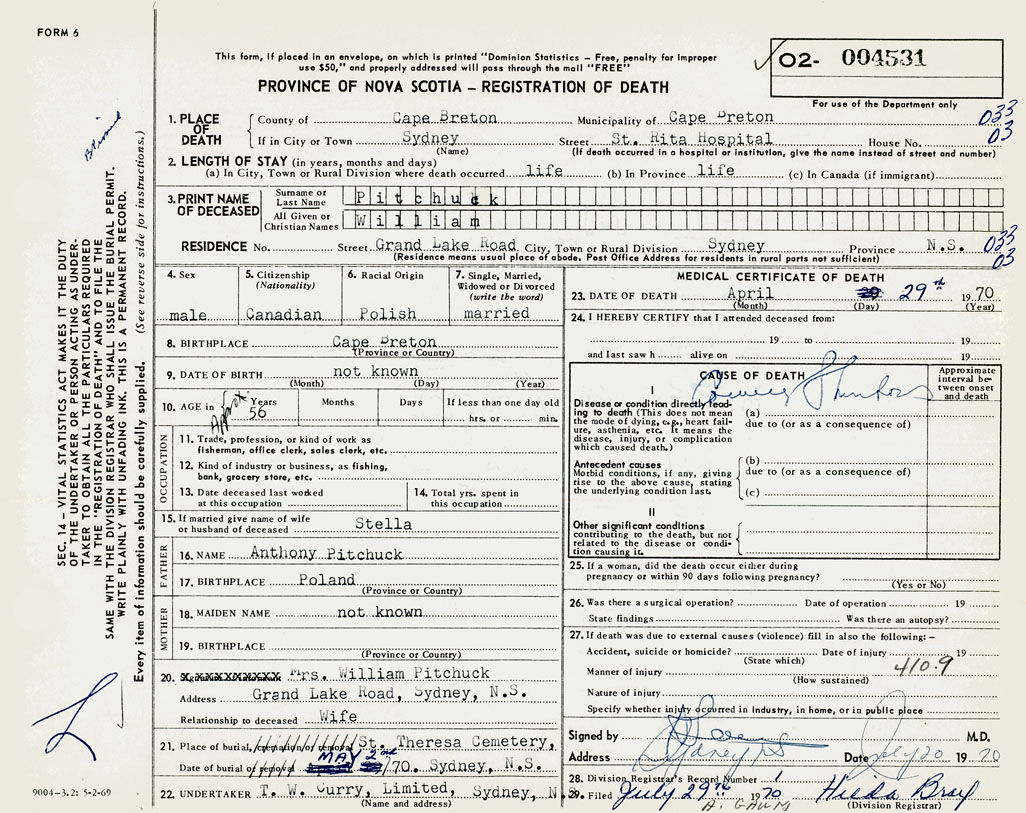 FORM 6
This form, if placed in an envelope, on which is printed "Dominion Statistics – Free, penalty for improper
use $50," and properly addressed will pass through the mail "FREE"
PROVINCE OF NOVA SCOTIA – REGISTRATION OF DEATH
O2- 004531
For use of the Department only
1. PLACE OF DEATH
County of Cape Breton Municipality of Cape Breton 033
If in City or Town Sydney Street St. Rita Hospital House No. 03
(Name) (If death occurred in a hospital or institution, give the name instead of street and number)
2. LENGTH OF STAY (in years, months and days)
(a) In City, Town or Rural Division where death occurred life (b) In Province life (c) In Canada (if immigrant)
3. PRINT NAME OF DECEASED
Surname or Last Name Pitchuck
All Given or Christian Names William
RESIDENCE No. Street Grand Lake Road City, Town or Rural Division Sydney Province N.S. 033
(Residence means usual place of abode. Post Office Address for residents in rural parts not sufficient) 03
4. Sex
male
5. Citizenship
(Nationality)
Canadian
6. Racial Origin
Polish
7. Single, Married,
Widowed or Divorced
(write the word)
married
8. BIRTHPLACE Cape Breton
(Province or Country)
9. DATE OF BIRTH not known
(Month) (Day) (Year)
10. AGE in Approx Years 56 Months Days If less than one day old
hrs. or min.
OCCUPATION
11. Trade, profession, or kind of work as
fisherman, office clerk, sales clerk, etc.
12. Kind of industry or business, as fishing,
bank, grocery store, etc.
13. Date deceased last worked
at this occupation
14. Total yrs. spent in
this occupation
15. If married give name of wife
or husband of deceased Stella
FATHER
16. NAME Anthony Pitchuck
17. BIRTHPLACE Poland
(Province or Country)
MOTHER
18. MAIDEN NAME not known
19. BIRTHPLACE
(Province or Country)
20. Mrs. William Pitchuck
Address Grand Lake Road, Sydney, N.S.
Relationship to deceased Wife
21. Place of burial, cremation/or removal St. Theresa Cemetery,
Date of burial or removal MAY 2nd /70. Sydney, N.S.
22. UNDERTAKER T. W. Curry, Limited, Sydney, N.S.
(Name and address)
MEDICAL CERTIFICATE OF DEATH
23. DATE OF DEATH April 29th 1970
(Month) (Day) (Year)
24. I HEREBY CERTIFY that I attended deceased from:
19 to 19
and last saw h alive on 19
CAUSE OF DEATH
Approximate
interval be-
tween onset
and death
I
Disease or condition directly lead-
ing to death (This does not mean
the mode of dying, e.g., heart fail-
ure, asthenia, etc. It means the
disease, injury, or complication
which caused death.)
(a)
due to (or as a consequence of)
Antecedent causes
Morbid conditions, if any, giving
rise to the above cause, stating
the underlying condition last.
(b)
due to (or as a consequence of)
(c)
II
Other significant conditions
contributing to the death, but not
related to the disease or condi-
tion causing it.
25. If a woman, did the death occur either during
pregnancy or within 90 days following pregnancy?
(Yes or No)
26. Was there a surgical operation? Date of operation 19
State findings Was there an autopsy?
27. If death was due to external causes (violence) fill in also the following: –
Accident, suicide or homicide? Date of injury 19
(State which)
Manner of injury 410.9
(How sustained)
Nature of injury
Specify whether injury occurred in industry, in home, or in public place
Signed by M.D.
Address Sydney NS Date July 20 1970
28. Division Registrar's Record Number 1
29. Filed July 29th 1970 Hilda Bray
(Division Registrar)
SEC. 14 – VITAL STATISTICS ACT MAKES IT THE DUTY
OF THE UNDERTAKER OR PERSON ACTING AS UNDER-
TAKER TO OBTAIN ALL THE PARTICULARS REQUIRED
IN THE "REGISTRATION OF DEATH" AND TO FILE THE
SAME WITH THE DIVISION REGISTRAR WHO SHALL ISSUE THE BURIAL PERMIT.
WRITE PLAINLY WITH UNFADING INK. THIS IS A PERMANENT RECORD.
Every item of information should be carefully supplied. (See reverse side for instructions.)
9004-3.2: 5-2-69